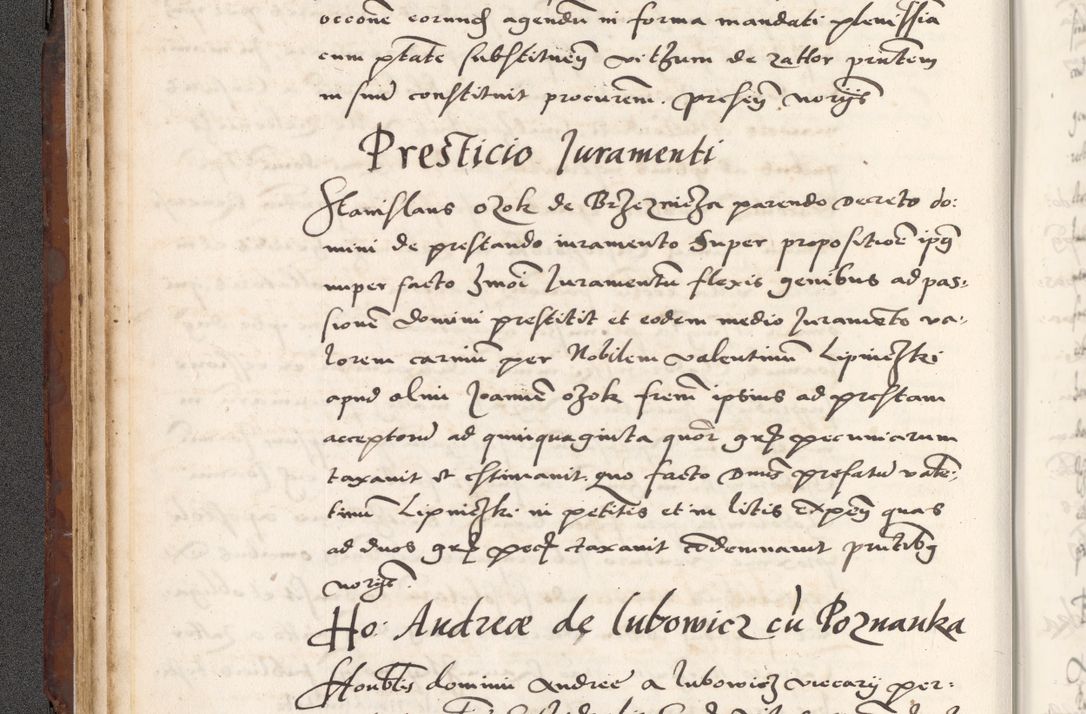 occone eorundem agendum in forma mandati plenissia
cum ptate substituen vitzum de zattor pntem
in suum constituit procurem. presen. norijs
Presticio Juramenti
Stanislaus ozok de Brzeznicza parendo decreto do:
mini de prestando iuramento super propositioe ipm
nuper facto Juramentum flexis genibus ad pas:
sionem domini prestitit et eodem medio Juramento va:
lorem carnium per Nobilem valentinum Lipniczki
apud olim Joannem ozok frem ipsius ad prestam
acceptorum ad quinquaginta quor grs pecuniarum
taxavit et estimavit. quo facto dnus prefatum valen:
tinum Lipniczki in petitis et in litis expen quas
ad duos grs pec taxavit condemnavit pntibus
norijs
Ho: Andreæ de lubowicz cu Poznanka
Honblis dominus Andree a lubowicz vicarij per: